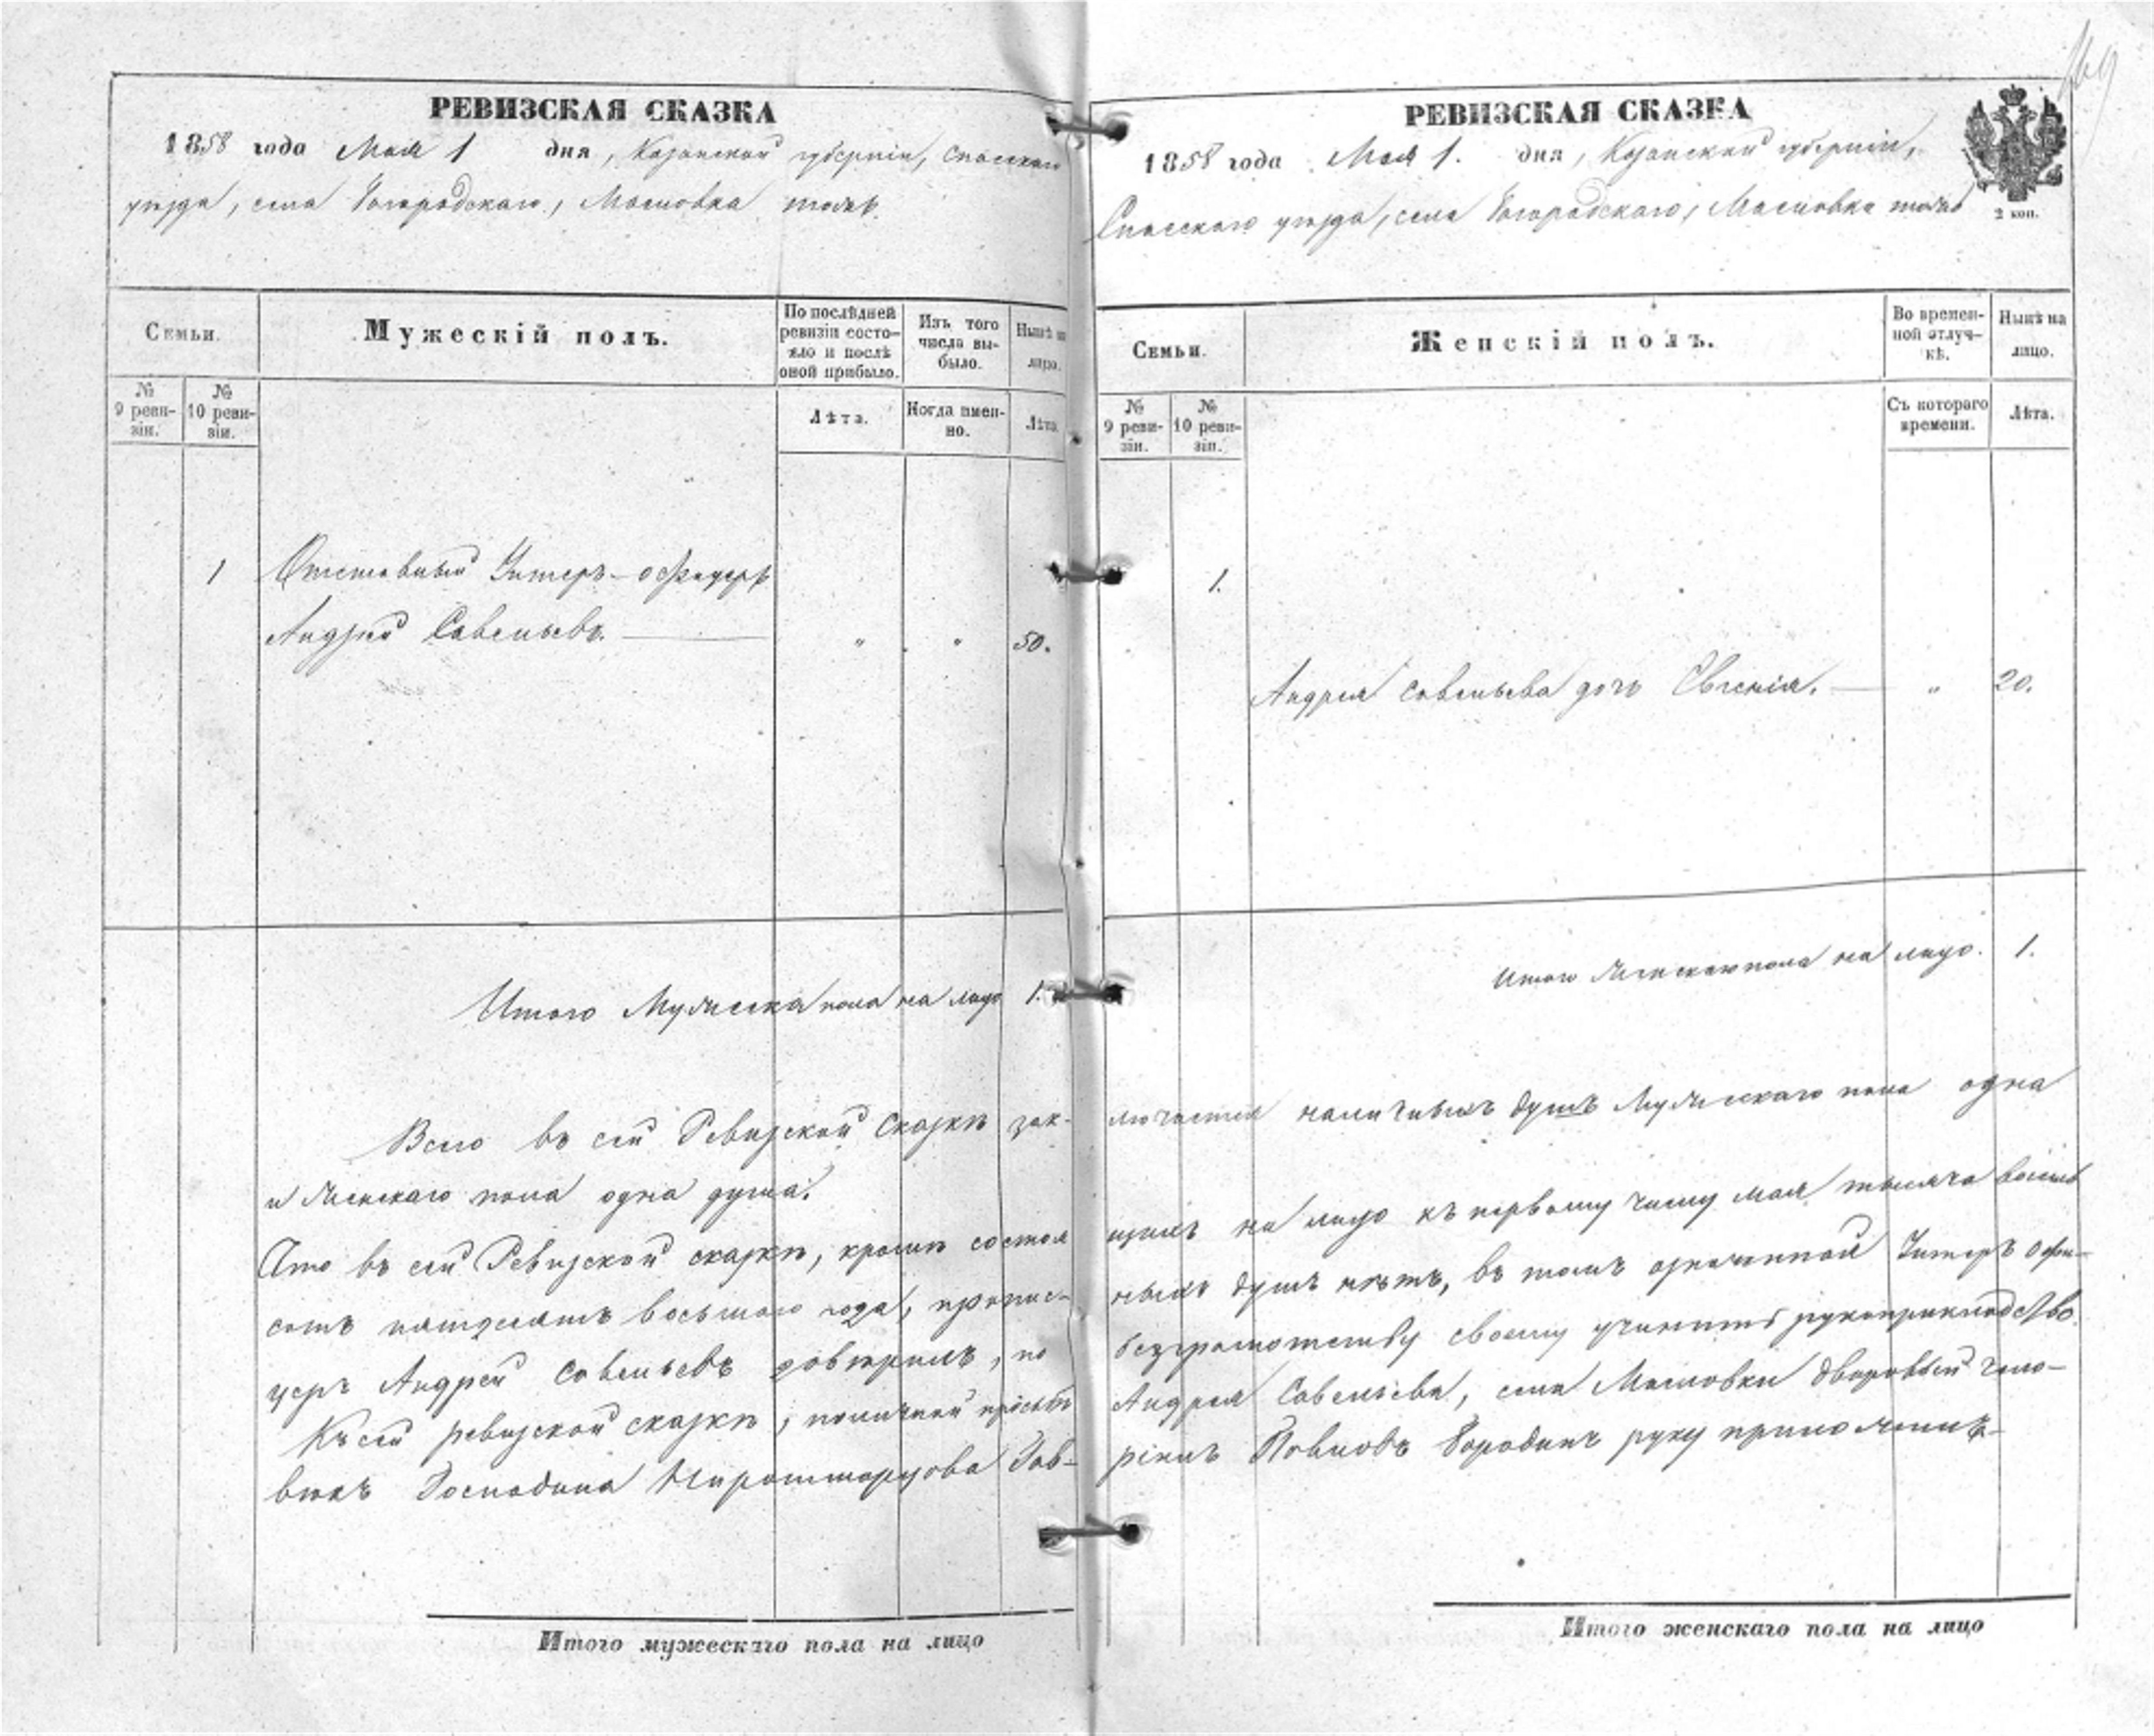 169
РЕВИЗСКАЯ СКАЗКА
1858 года Мая 1 дня, Казанской губернии, Спасскаго
уѣзда, села Богородскаго, Масловка тожъ.
Семьи.
Мужескій полъ.
По послѣдней ревизіи состояло и послѣ оной прибыло.
Изъ того числа выбыло.
Нынѣ на лицо.
№ 9 ревизіи.
№ 10 ревизіи.
Лѣта.
Когда именно.
Лѣта.
1 Отставный Унтеръ-офицеръ
Андрей Савельевъ. " " 50.
Итого Мужеска пола на лицо 1.
Всего въ сей Ревизской Сказкѣ зак-
и Женскаго пола одна душа.
Что въ сей Ревизской сказкѣ, кромѣ состоя
сотъ пятдесятъ восьмаго года, прописс-
церъ Андрей Савельевъ довѣрилъ, по
Къ сей ревизской сказкѣ, по личной прозьбѣ
вѣкъ Господина Гав-
Итого мужескаго пола на лицо
РЕВИЗСКАЯ СКАЗКА
1858 года Мая 1. дня, Казанской губерніи,
Спасскаго уѣзда, села Богородскаго, Масловка тожъ
2 коп.
Семьи.
Женскій полъ.
Во временной отлучкѣ.
Нынѣ на лицо.
№ 9 ревизіи.
№ 10 ревизіи.
Съ котораго времени.
Лѣта.
1.
Андрея Савельева дочь Евгенія. " 20.
Итого Женскаго пола на лицо. 1.
лючается наличныхъ душъ Мужескаго пола одна
щихъ на лицо къ первому числу мая тысяча восемь
ныхъ душъ нѣтъ, въ томъ означенной Унтеръ офи-
безграмотству своему учинить рукоприкладство.
Андрея Савельева, села Масловки дворовый чело-
рілъ Павловъ Бородинъ руку приложилъ
Итого женскаго пола на лицо